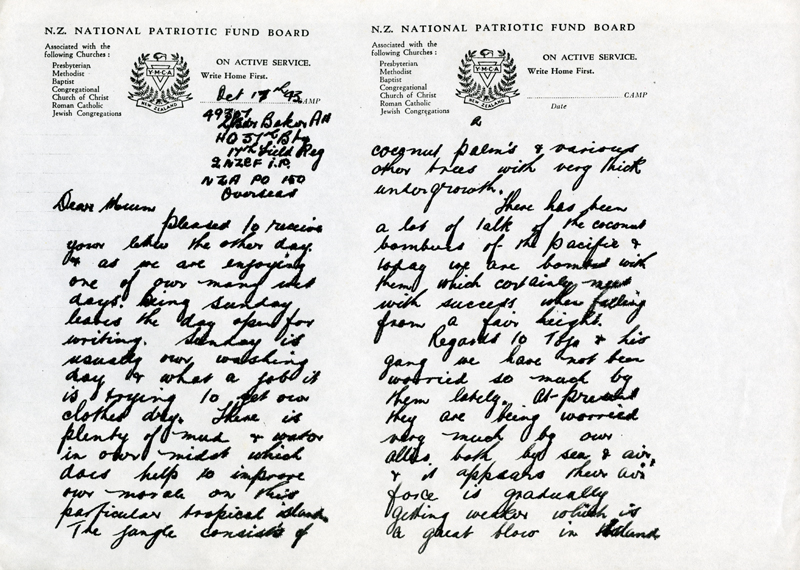 N.Z. NATIONAL PATRIOTIC FUND BOARD
Associated with the
following Churches :
Presbyterian
Methodist
Baptist
Congregational
Church of Christ
Roman Catholic
Jewish Congregations
Y·M·C·A
NEW ZEALAND
ON ACTIVE SERVICE.
Write Home First.
Oct 17th 43 CAMP
Baker A H
HQ 37th Bty
17th Field Reg
2 NZEF I.P.
NZA PO 150
Overseas
Dear Mum
Pleased to receive
your letter the other day.
& as we are enjoying
one of our many wet
days. Being Sunday
leaves the day open for
writing. Sunday is
usually our washing
day & what a job it
is trying to get our
clothes dry. There is
plenty of mud & water
in our midst which
does help to improve
our morale on this
particular tropical island.
The jungle consists of
N.Z. NATIONAL PATRIOTIC FUND BOARD
Associated with the
following Churches :
Presbyterian
Methodist
Baptist
Congregational
Church of Christ
Roman Catholic
Jewish Congregations
Y·M·C·A
NEW ZEALAND
ON ACTIVE SERVICE.
Write Home First.
CAMP
Date
coconut palm's & various
other trees with very thick
undergrowth.
There has been
a lot of talk of the coconut
bombers of the Pacific &
today we are bombed with
them which certainly meet
with success when falling
from a fair height.
Regards to Tojo & his
gang we have not been
worried so much by
them lately. At present
they are being worried
very much by our
allies both by sea & air.
& it appears their air
force is gradually
getting weaker which is
a great blow in